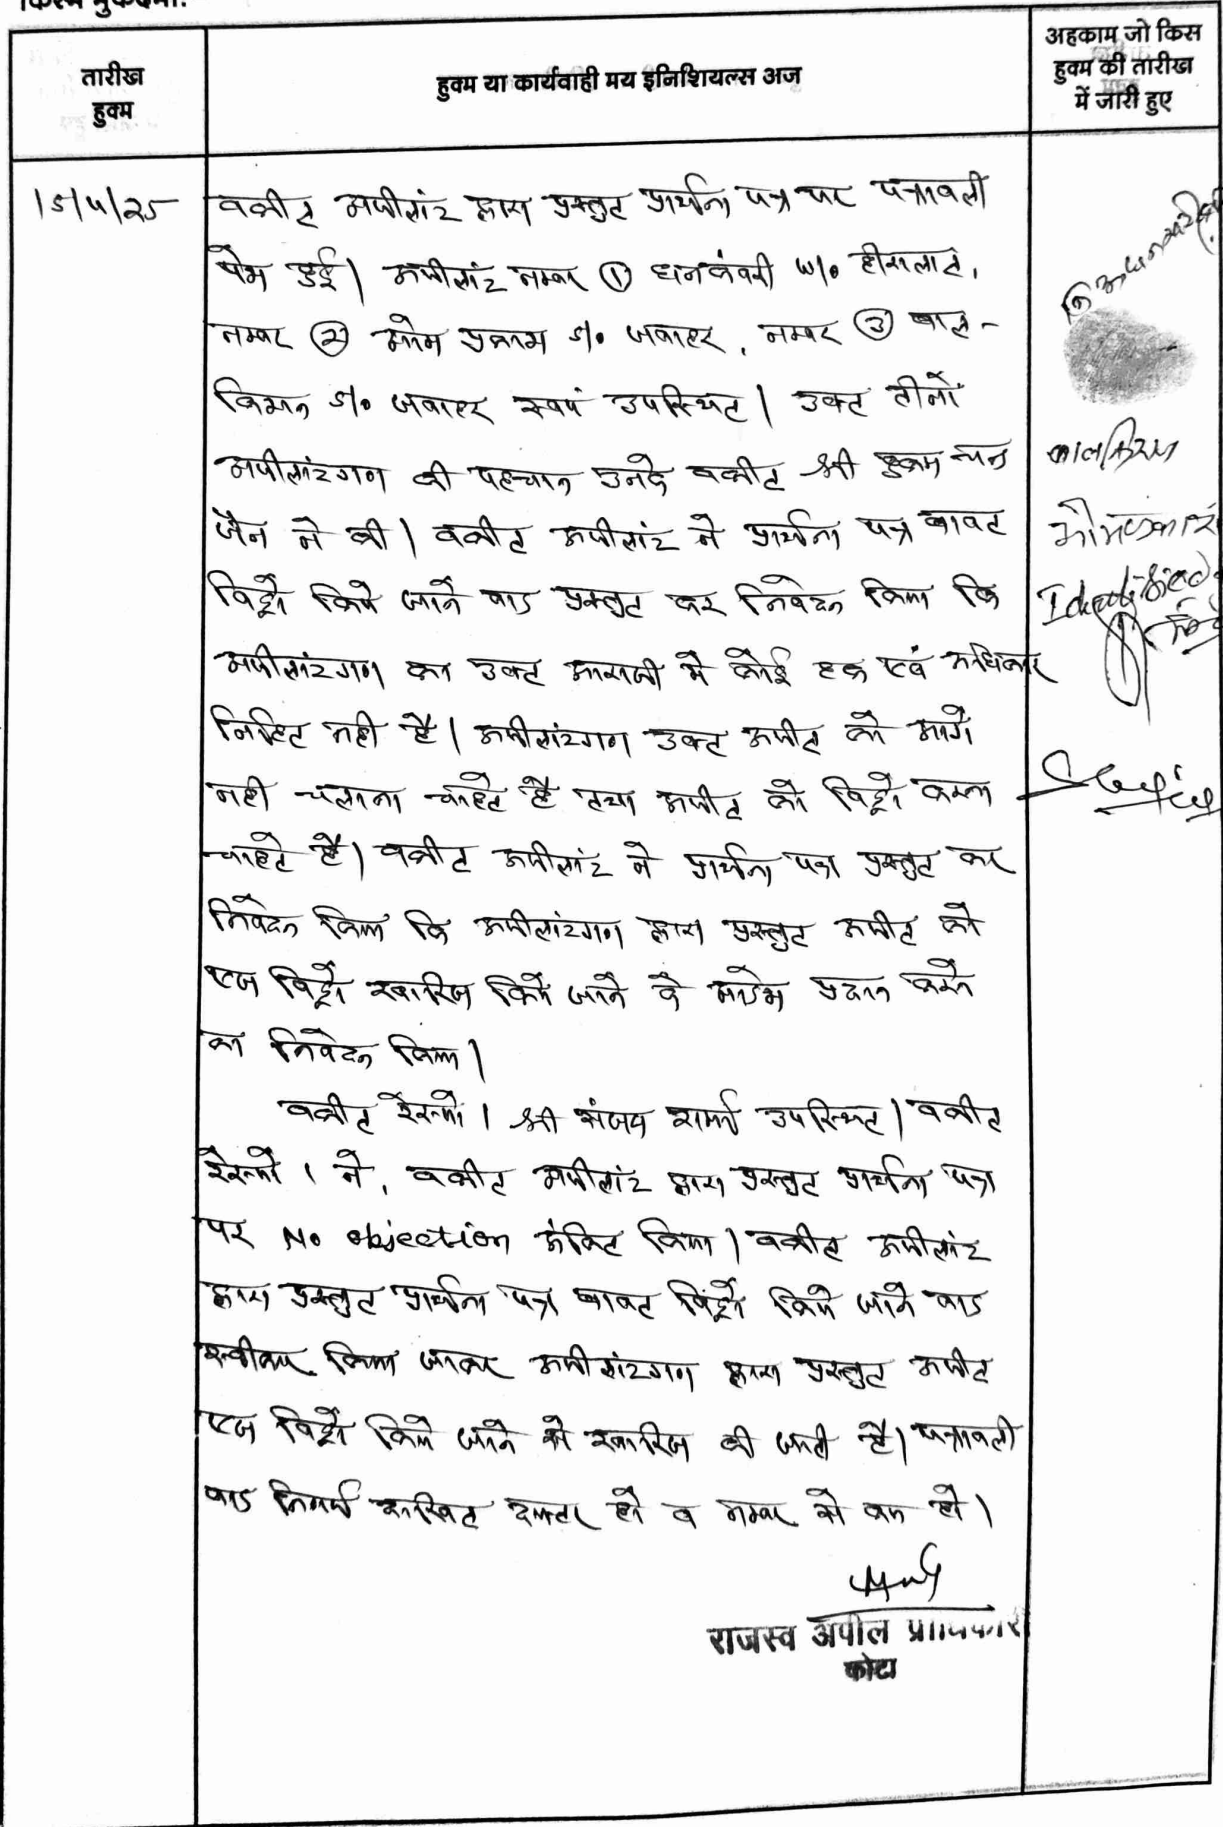 तारीख
हुक्म
हुक्म या कार्यवाही मय इनिशियल्स अज
अहकाम जो किस
हुक्म की तारीख
में जारी हुए
15/4/25
वकील अपीलांट द्वारा प्रस्तुत प्रार्थना पत्र पर पत्रावली
पेश हुई। अपीलांट नम्बर ① धनकंवरी W/o हीरालाल,
नम्बर ② ओम प्रकाश S/o जवाहर, नम्बर ③ बाल-
किशन S/o जवाहर स्वयं उपस्थित। उक्त तीनों
अपीलांटगण की पहचान उनके वकील श्री हुकम चन्द
जैन ने की। वकील अपीलांट ने प्रार्थना पत्र बाबत
विड्रो किये जाने वाद प्रस्तुत कर निवेदन किया कि
अपीलांटगण का उक्त आराजी में कोई हक एवं अधिकार
निहित नही है। अपीलांटगण उक्त अपील को आगे
नही चलाना चाहते है तथा अपील को विड्रो करना
चाहते है। वकील अपीलांट ने प्रार्थना पत्र प्रस्तुत कर
निवेदन किया कि अपीलांटगण द्वारा प्रस्तुत अपील को
एज विड्रो खारिज किये जाने के आदेश प्रदान करने
का निवेदन किया।
वकील रेस्पो। श्री संजय शर्मा उपस्थित। वकील
रेस्पो। ने, वकील अपीलांट द्वारा प्रस्तुत प्रार्थना पत्र
पर No objection अंकित किया। वकील अपीलांट
द्वारा प्रस्तुत प्रार्थना पत्र बाबत विड्रो किये जाने वाद
स्वीकार किया जाकर अपीलांटगण द्वारा प्रस्तुत अपील
एज विड्रो किये जाने से खारिज की जाती है। पत्रावली
बाद निर्णय दाखिल दफ्तर हो व नम्बर से कम हो।
राजस्व अपील
कोटा
बालकिशन
ओमप्रकाश
Identified